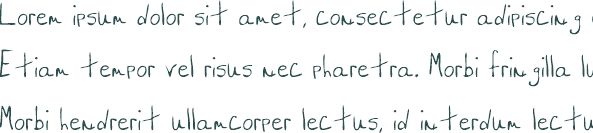 Lorem ipsum dolor sit amet, consectetur adipiscing
Etiam tempor vel risus nec pharetra. Morbi fringilla lu
Morbi hendrerit ullamcorper lectus, id interdum lectu